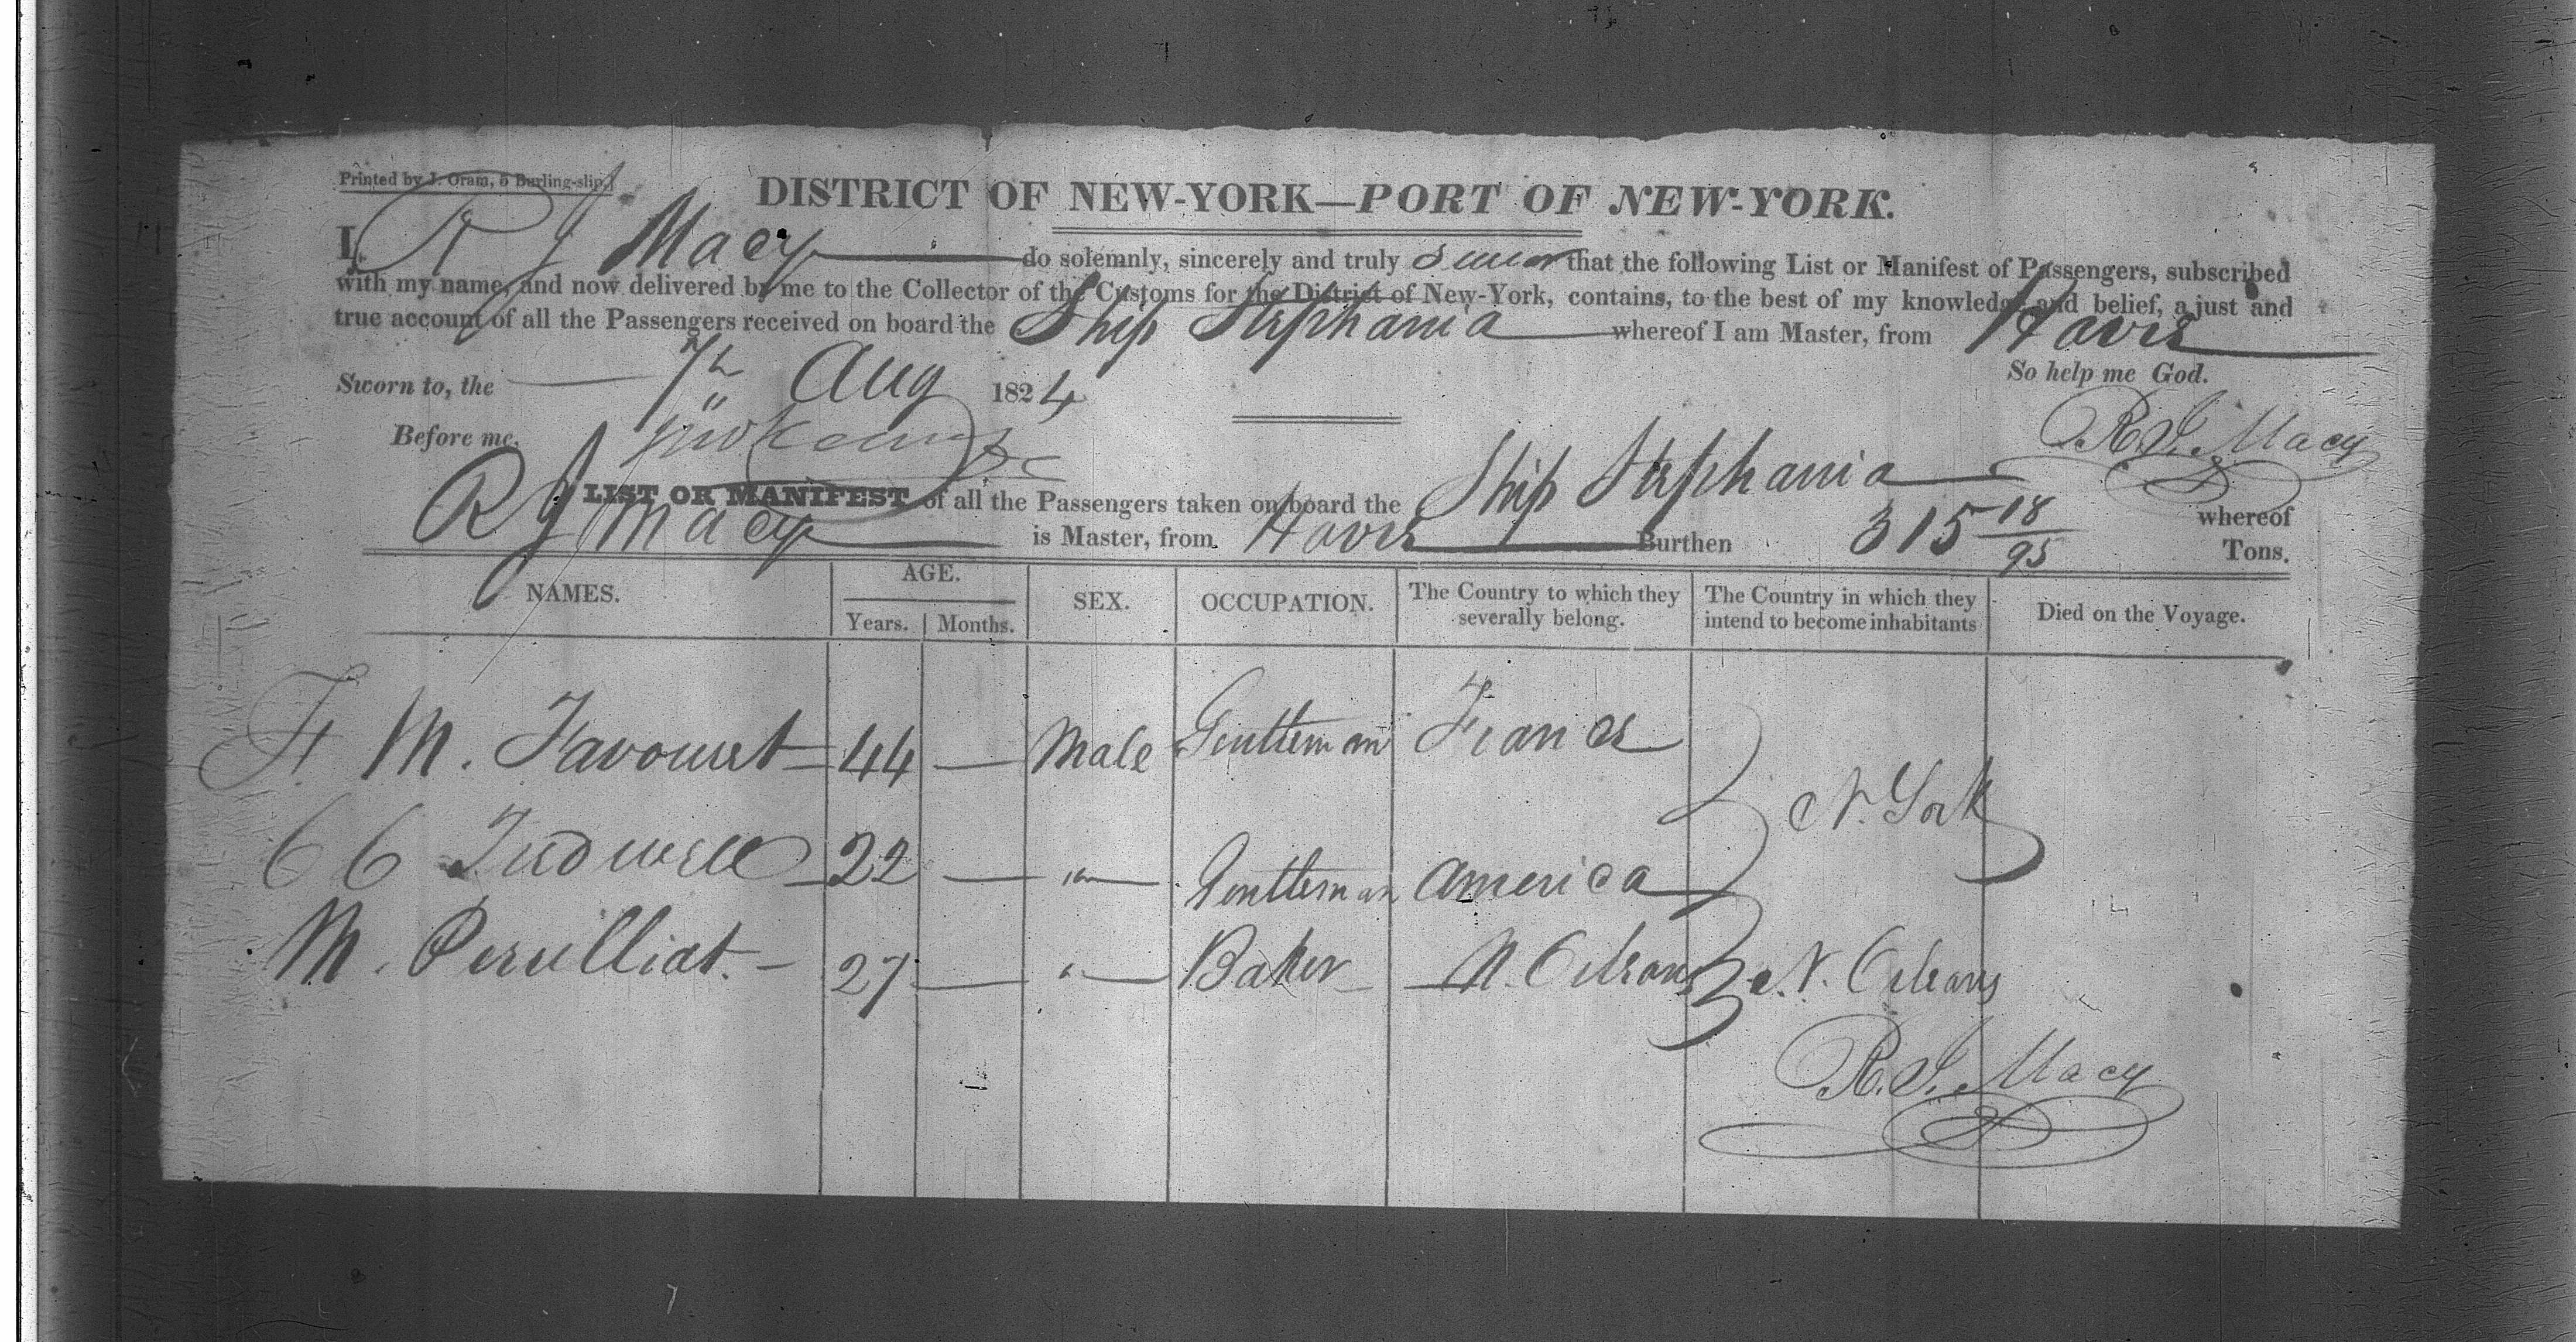 Printed by J. Oram, 5 Burling-slip.
DISTRICT OF NEW-YORK—PORT OF NEW-YORK.
I, R J Macy do solemnly, sincerely and truly swear that the following List or Manifest of Passengers, subscribed
with my name, and now delivered by me to the Collector of the Customs for the District of New-York, contains, to the best of my knowledge and belief, a just and
true account of all the Passengers received on board the Ship Stephania whereof I am Master, from Havre
So help me God.
Sworn to, the 7th Aug 1824
R. J. Macy
Before me,
LIST OR MANIFEST of all the Passengers taken on board the Ship Stephania whereof
R J Macy is Master, from Havre Burthen 315 18/95 Tons.
NAMES. AGE. Years. Months. SEX. OCCUPATION. The Country to which they severally belong. The Country in which they intend to become inhabitants Died on the Voyage.
F. M. Favouret 44 — Male Gentleman France
N. York
C C Tudwell 22 — " — Gentleman America
M. Perulliat. 27 — " — Baker N. Orleans N. Orleans
R. J. Macy